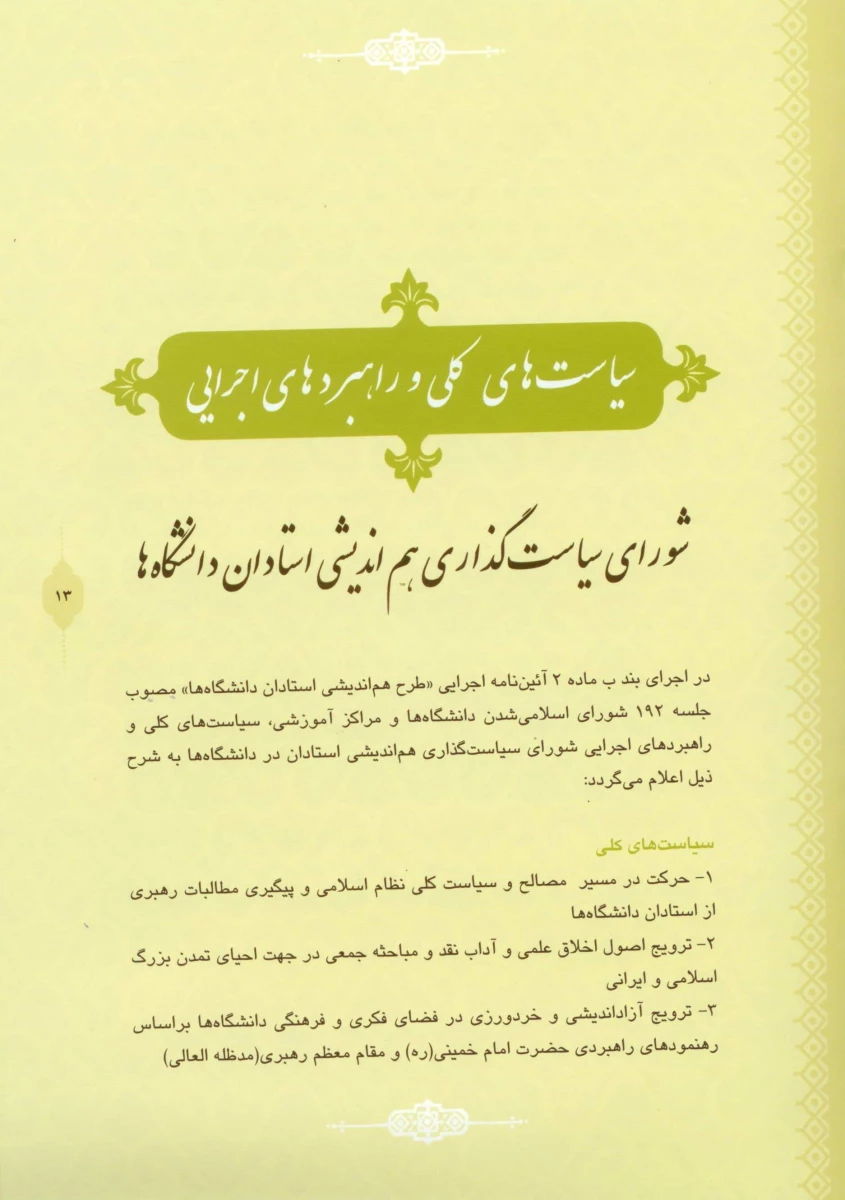 سیاست‌های کلی و راهبردهای اجرایی
شورای سیاست‌گذاری هم‌اندیشی استادان دانشگاه‌ها
۱۳
در اجرای بند ب ماده ۲ آئین‌نامه اجرایی «طرح هم‌اندیشی استادان دانشگاه‌ها» مصوب
جلسه ۱۹۲ شورای اسلامی‌شدن دانشگاه‌ها و مراکز آموزشی، سیاست‌های کلی و
راهبردهای اجرایی شورای سیاست‌گذاری هم‌اندیشی استادان در دانشگاه‌ها به شرح
ذیل اعلام می‌گردد:
سیاست‌های کلی
۱- حرکت در مسیر مصالح و سیاست کلی نظام اسلامی و پیگیری مطالبات رهبری
از استادان دانشگاه‌ها
۲- ترویج اصول اخلاق علمی و آداب نقد و مباحثه جمعی در جهت احیای تمدن بزرگ
اسلامی و ایرانی
۳- ترویج آزاداندیشی و خردورزی در فضای فکری و فرهنگی دانشگاه‌ها براساس
رهنمودهای راهبردی حضرت امام خمینی(ره) و مقام معظم رهبری(مدظله العالی)